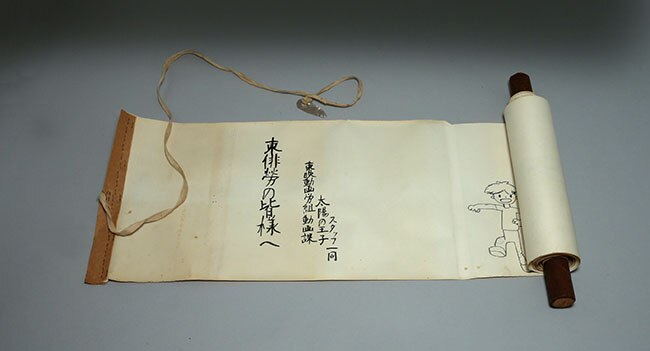 東俳労の皆様へ
東映動画労組動画課
太陽の王子
スタッフ一同